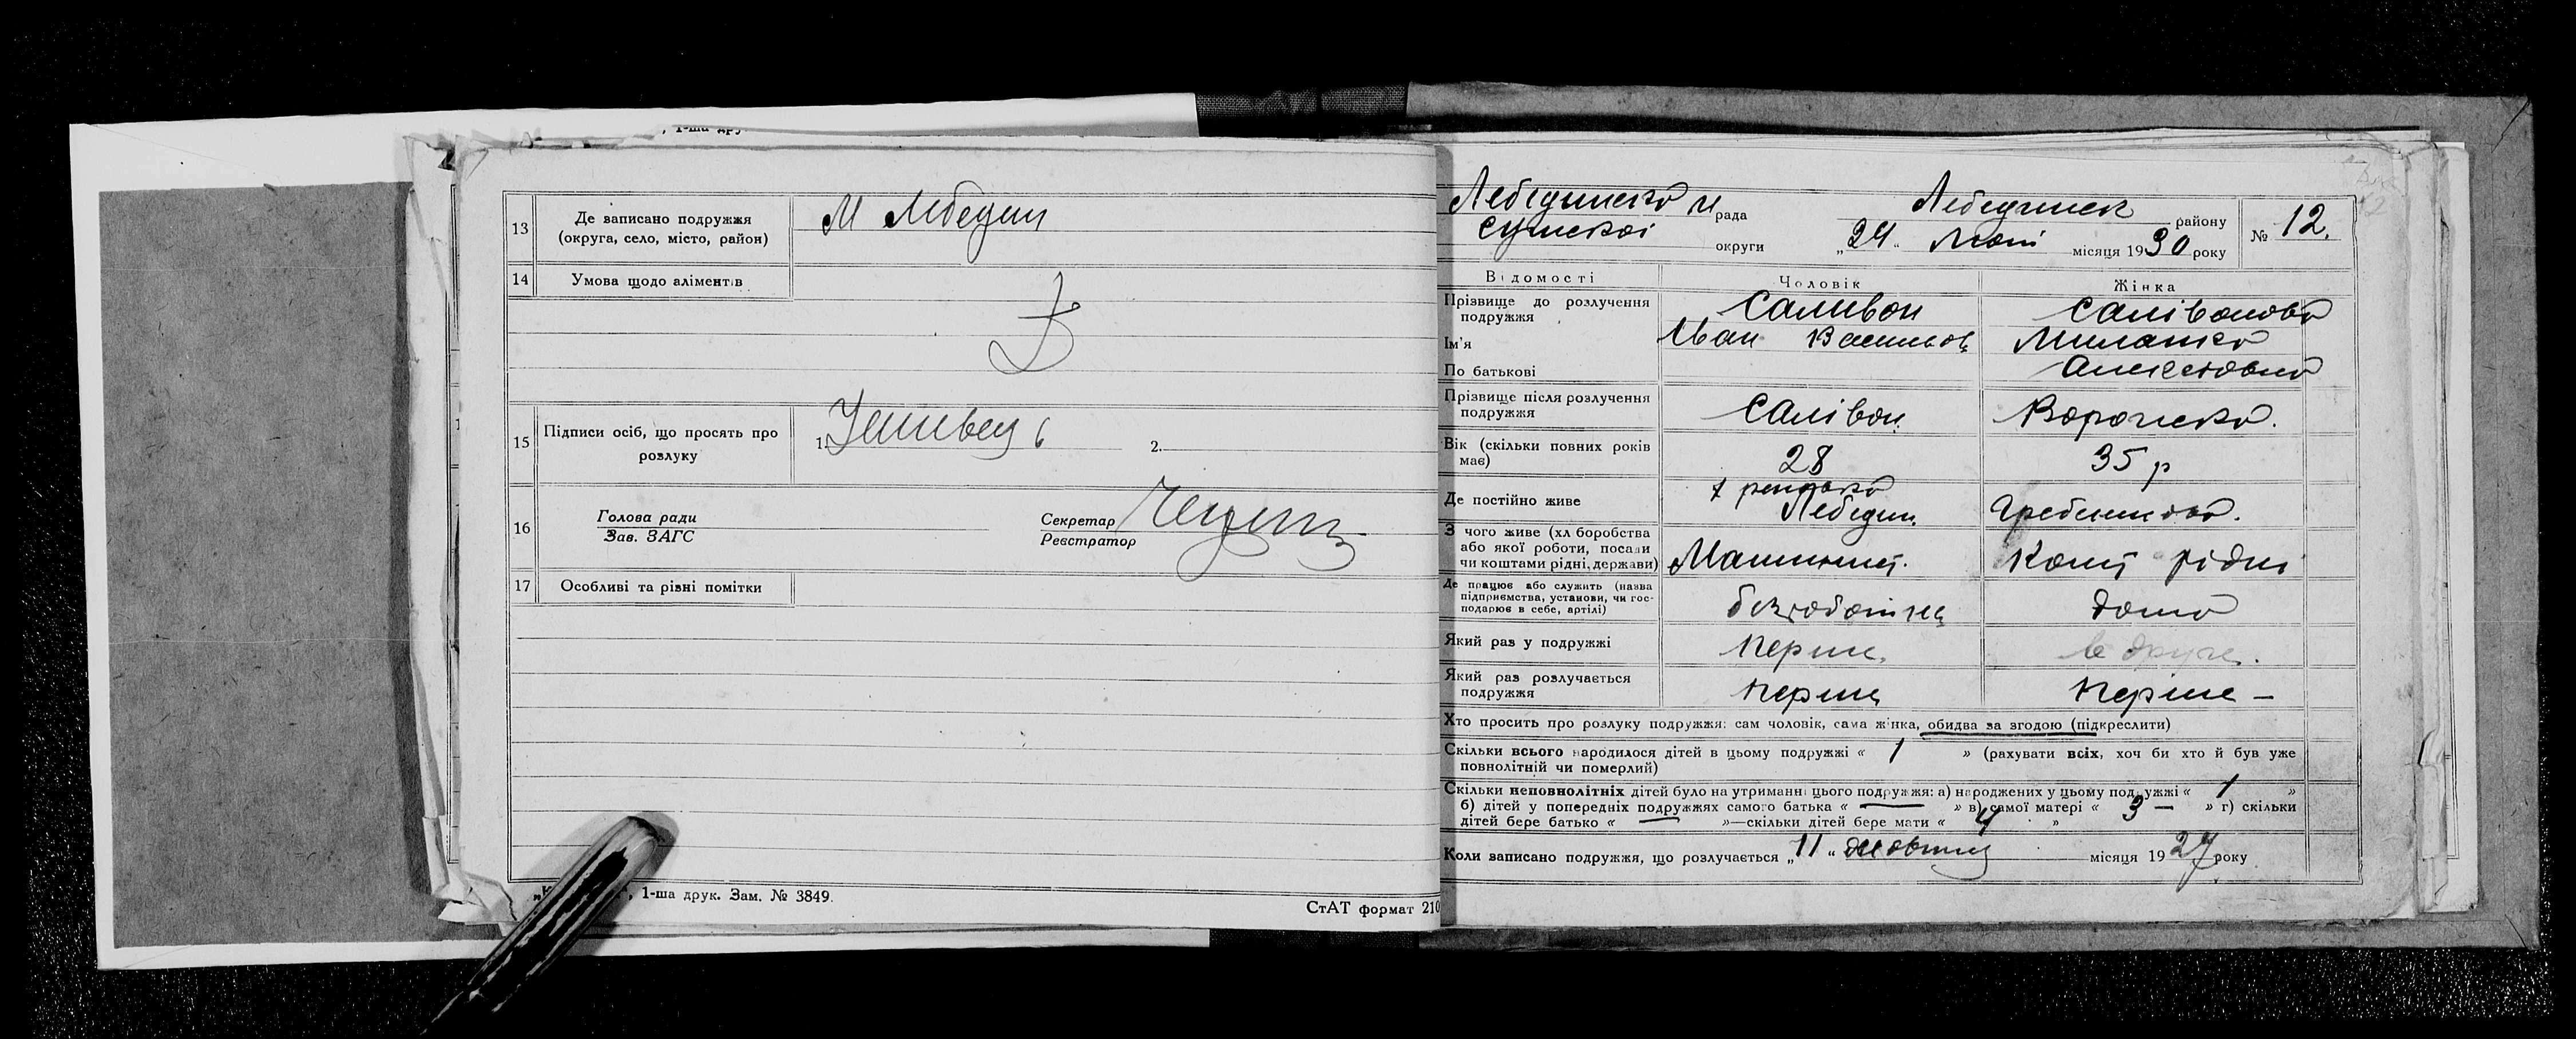 , 1-ша дру
13 Де записано подружжя (округа, село, місто, район) М Лебедин
14 Умова щодо аліментів
15 Підписи осіб, що просять про розлуку 1. 2.
16 Голова ради
Зав. ЗАГС
Секретар
Реєстратор
17 Особливі та різні помітки
, 1-ша друк. Зам. № 3849.
СтАТ формат 210
Лебединська м рада Лебединськ району № 12.
Сумської округи „24“ Лют місяця 1930 року
Відомості Чоловік Жінка
Прізвище до розлучення подружжя Саливон Салівонова
Ім'я Иван Васильов Миланка
По батькові Алексеовна
Прізвище після розлучення подружжя Салівон Вороненко.
Вік (скільки повних років має) 28 35 р
Де постійно живе Лебедин.
З чого живе (хліборобства або якої роботи, посади чи коштами рідні, держави) Машинист. Кошт рідні
Де працює або служить (назва підприємства, установи, чи господарює в себе, артілі) безробітнй дома
Який раз у подружжі Перше. в друге.
Який раз розлучається подружжя перше перше —
Хто просить про розлуку подружжя: сам чоловік, сама жінка, обидва за згодою (підкреслити)
Скільки всього народилося дітей в цьому подружжі « 1 » (рахувати всіх, хоч би хто й був уже
повнолітній чи померлий)
Скільки неповнолітніх дітей було на утриманні цього подружжя: а) народжених у цьому подружжі « 1 »
б) дітей у попередніх подружжях самого батька « — » в) самої матері « 3 — » г) скільки
дітей бере батько « — »—скільки дітей бере мати « 4 »
Коли записано подружжя, що розлучається „11“ жовтня місяця 1927 року